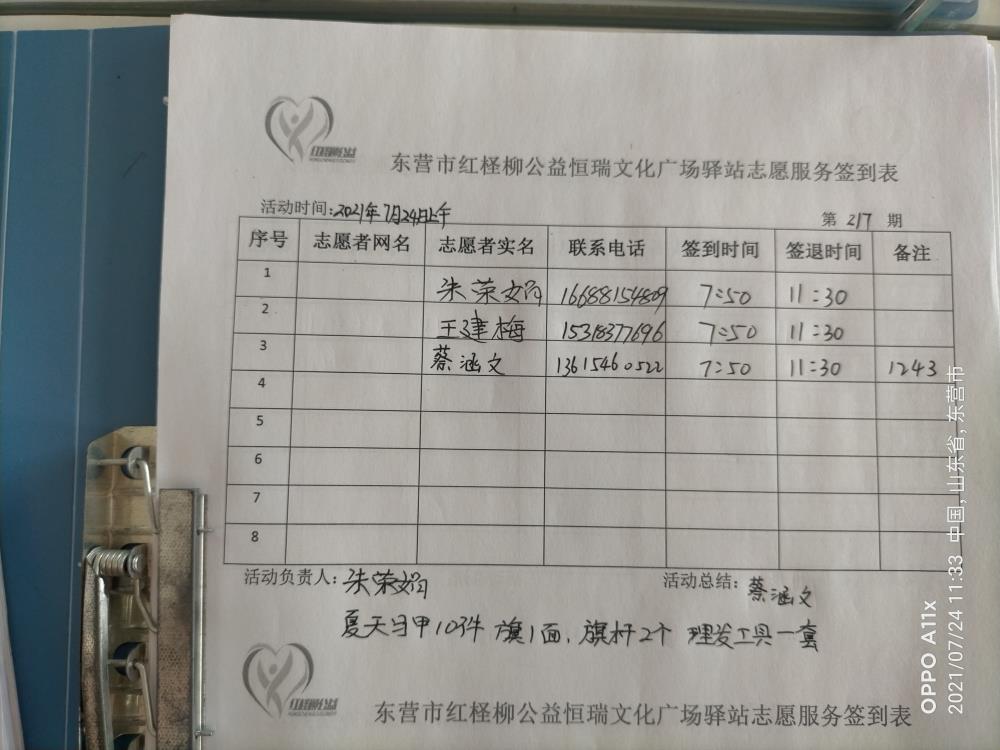 红柽柳公益
东营市红柽柳公益恒瑞文化广场驿站志愿服务签到表
活动时间:2021年7月24日上午 第 217 期
序号 志愿者网名 志愿者实名 联系电话 签到时间 签退时间 备注
1 朱荣娟 16688154809 7:50 11:30
2 王建梅 15318377696 7:50 11:30
3 蔡涵文 13615460522 7:50 11:30 1243
4
5
6
7
8
活动负责人: 朱荣娟 活动总结: 蔡涵文
夏天马甲103件 旗1面, 旗杆2个 理发工具一套
红柽柳公益
东营市红柽柳公益恒瑞文化广场驿站志愿服务签到表
OPPO A11x
2021/07/24 11:33 中国, 山东省, 东营市